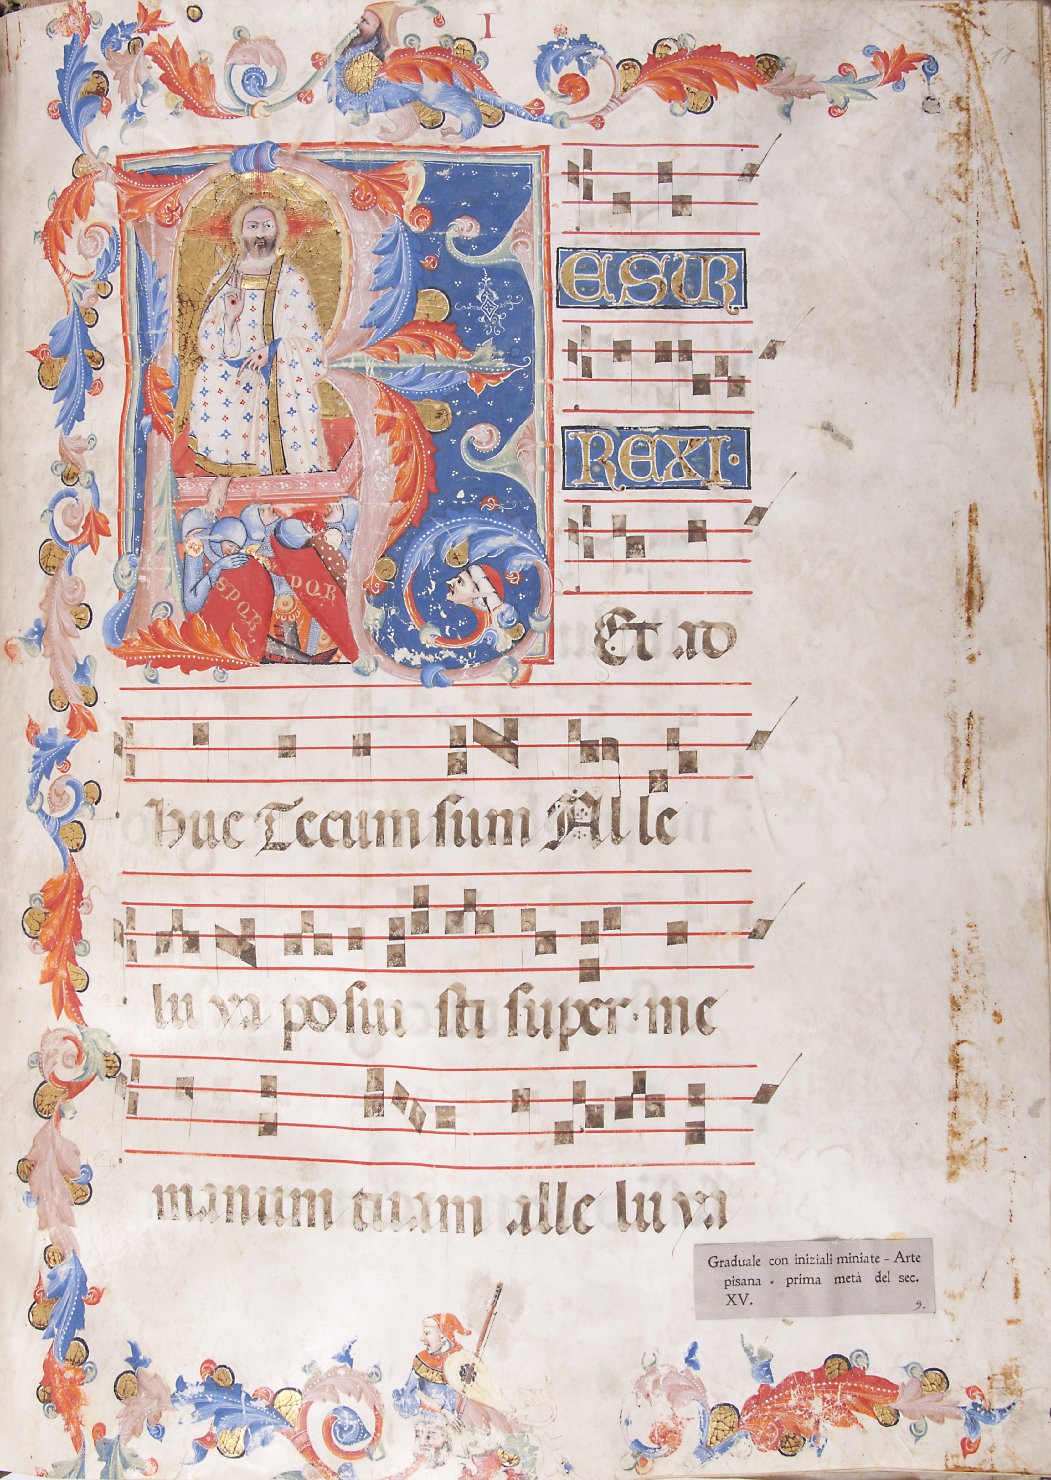 I
17
RESUR
REXI·
Et ad
huc Tecum sum Al le
lu ya posui sti super·me
manum tuam alle lu ya
SPQR
SPQR
Graduale con iniziali miniate - Arte
pisana - prima metà del sec.
XV.